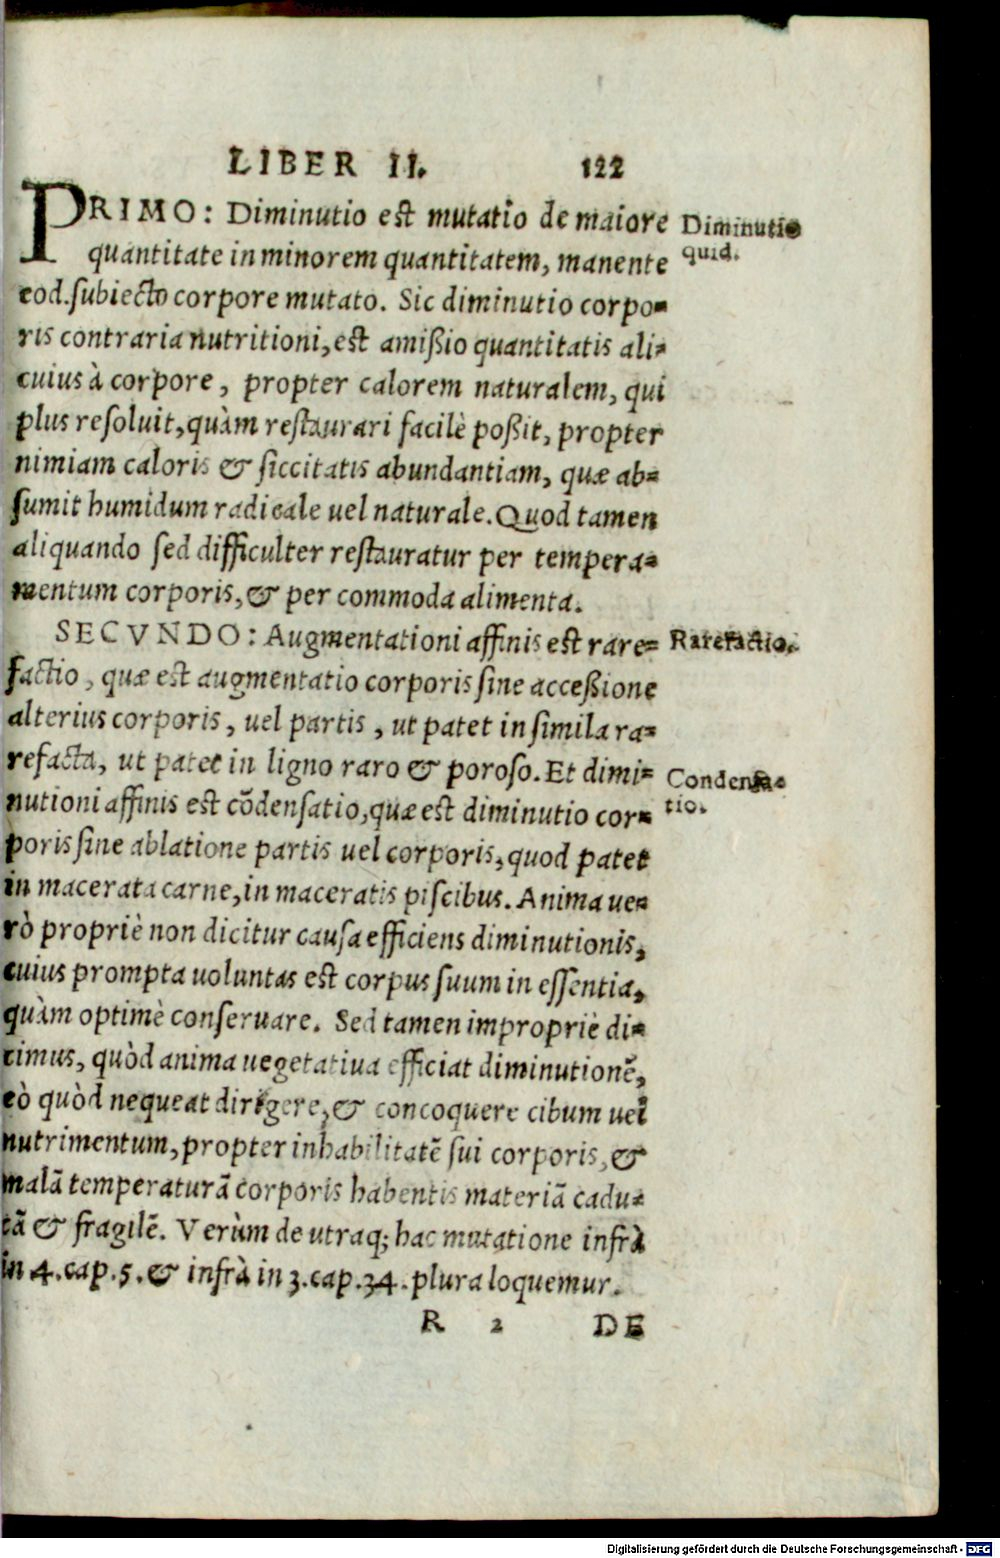 LIBER II. 122
PRIMO: Diminutio est mutatio de maiore
Diminutio
quantitate in minorem quantitatem, manente
quid.
eod. subiecto corpore mutato. Sic diminutio corpo-
ris contraria nutritioni, est amißio quantitatis ali-
cuius à corpore, propter calorem naturalem, qui
plus resoluit, quàm restaurari facilè poßit, propter
nimiam caloris & siccitatis abundantiam, quæ ab-
sumit humidum radicale uel naturale. Quod tamen
aliquando sed difficulter restauratur per tempera-
mentum corporis, & per commoda alimenta.
SECVNDO: Augmentationi affinis est rare-
Rarefactio.
factio, quæ est augmentatio corporis sine acceßione
alterius corporis, uel partis, ut patet in simila ra-
refacta, ut patet in ligno raro & poroso. Et dimi-
Condensa-
nutioni affinis est cōdensatio, quæ est diminutio cor-
tio.
poris sine ablatione partis uel corporis, quod patet
in macerata carne, in maceratis piscibus. Anima ue-
rò propriè non dicitur causa efficiens diminutionis,
cuius prompta uoluntas est corpus suum in essentia,
quàm optimè conseruare. Sed tamen impropriè di-
cimus, quòd anima uegetatiua efficiat diminutionē,
eò quòd nequeat dirigere, & concoquere cibum uel
nutrimentum, propter inhabilitatē sui corporis, &
malā temperaturā corporis habentis materiā cadu-
cā & fragilē. Verùm de utraq; hac mutatione infrà
in 4. cap. 5. & infrà in 3. cap. 34. plura loquemur.
R 2 DE
Digitalisierung gefördert durch die Deutsche Forschungsgemeinschaft - DFG